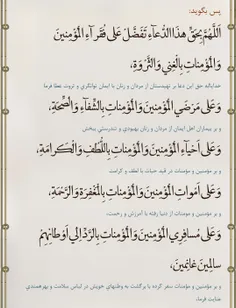 پس بگوید:
اَللّهُمَّ بِحَقِّ هذَا الدُّعآءِ تَفَضَّلْ عَلى فُقَرآءِ الْمُؤْمِنينَ
وَالْمُؤْمِناتِ بِالْغِنى وَالثَّرْوَةِ،
خدایا به حق این دعا بر تهیدستان از مردان و زنان با ایمان توانگری و ثروت عطا فرما
وَعَلى مَرْضَى الْمُؤْمِنينَ وَالْمُؤْمِناتِ بِالشِّفآءِ وَالصِّحَةِ،
و بر بیماران اهل ایمان از مردان و زنان بهبودی و تندرستی ببخش
وَعَلى اَحْيآءِ الْمُؤْمِنينَ وَالْمُؤْمِناتِ بِاللُّطْفِ وَالْكَرامَةِ،
و بر مؤمنین و مؤمنات در قید حیات با لطف و کرامت
وَعَلى اَمْواتِ الْمُؤْمِنينَ وَالْمُؤْمِناتِ بِالْمَغْفِرَةِ وَالرَّحْمَةِ،
و بر مؤمنین و مومنات از دنیا رفته با آمرزش و رحمت،
وَعَلى مُسافِرِى الْمُؤْمِنينَ وَالْمُؤْمِناتِ بِالرَّدِّ اِلى اَوْطانِهِمْ
سالِمينَ غانِمينَ،
و بر مؤمنین و مومنات سفر کرده با برگشت به وطنهای خویش در لباس سلامت و بهره‌مندی
عنایت فرما،